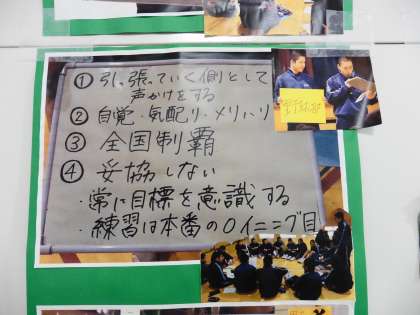 ① 引っ張っていく側として
声かけをする
② 自覚・気配り・メリハリ
③ 全国制覇
④ 妥協しない
・常に目標を意識する
・練習は本番の0イニング目